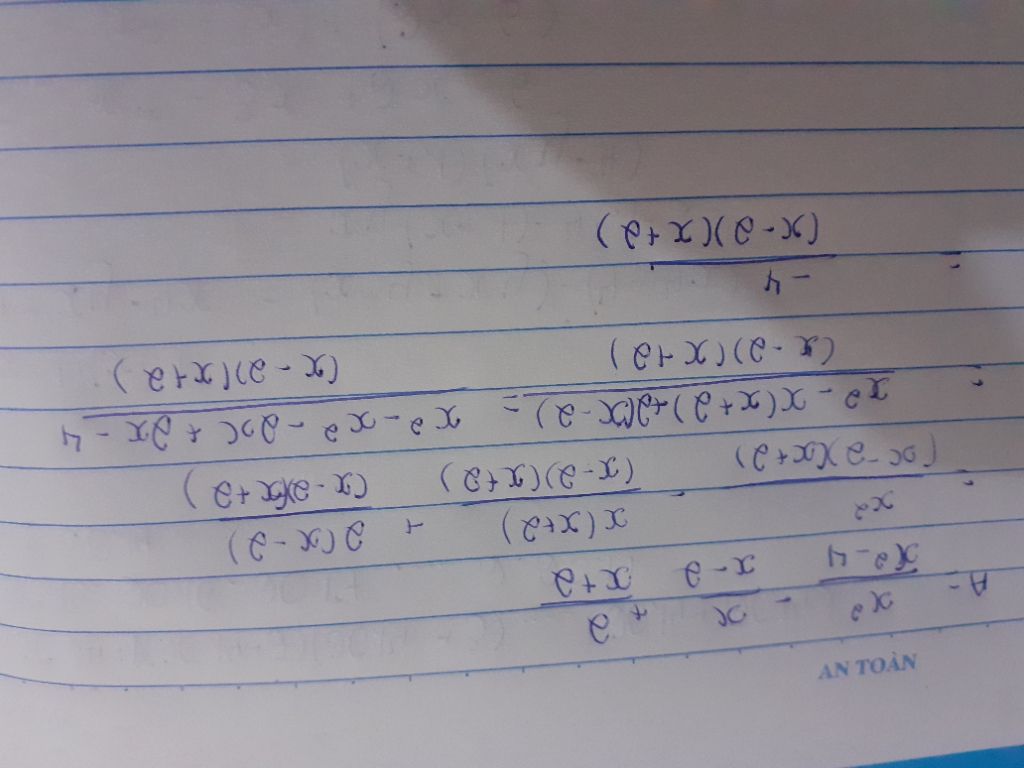 AN TOÀN
A = x²/(x² - 4) - x/(x - 2) + 2/(x + 2)
= x²/((x - 2)(x + 2)) - x(x + 2)/((x - 2)(x + 2)) + 2(x - 2)/((x - 2)(x + 2))
= (x² - x(x + 2) + 2(x - 2))/((x - 2)(x + 2)) = (x² - x² - 2x + 2x - 4)/((x - 2)(x + 2))
= -4/((x - 2)(x + 2))